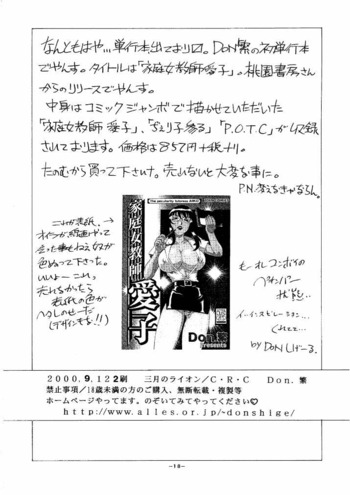 なんともはや…単行本出ており〼。DON繁の初単行本
でやんす。タイトルは「家庭女教師愛子」。桃園書房さん
からのリリースでやんす。
中身はコミックジャンボで描かせていただいた
「家庭女教師 愛子」、「ちぇり子参る」「P.O.T.C」が収録
されております。価格は857円+税+り。
たのむから買って下さい。売れないと大変な事に。
これが表紙、→
オイラが
色ぬって下さった。
いいよー これっ
売れなかったら
表紙の色が
(デザインもな!!)
The peculiarity tutoress AIKO
家庭女教師
愛子
Don.繁
presents
もーれコンボイの
イーインスピレーション…
くれてて…
by DONしげーる.
2000.9.122刷 三月のライオン/C・R・C Don. 繁
禁止事項/18歳未満の方のご購入、無断転載・複製等
ホームページやってます。のぞいてみてやってください♡
http://www.alles.or.jp/~donshige/
-18-